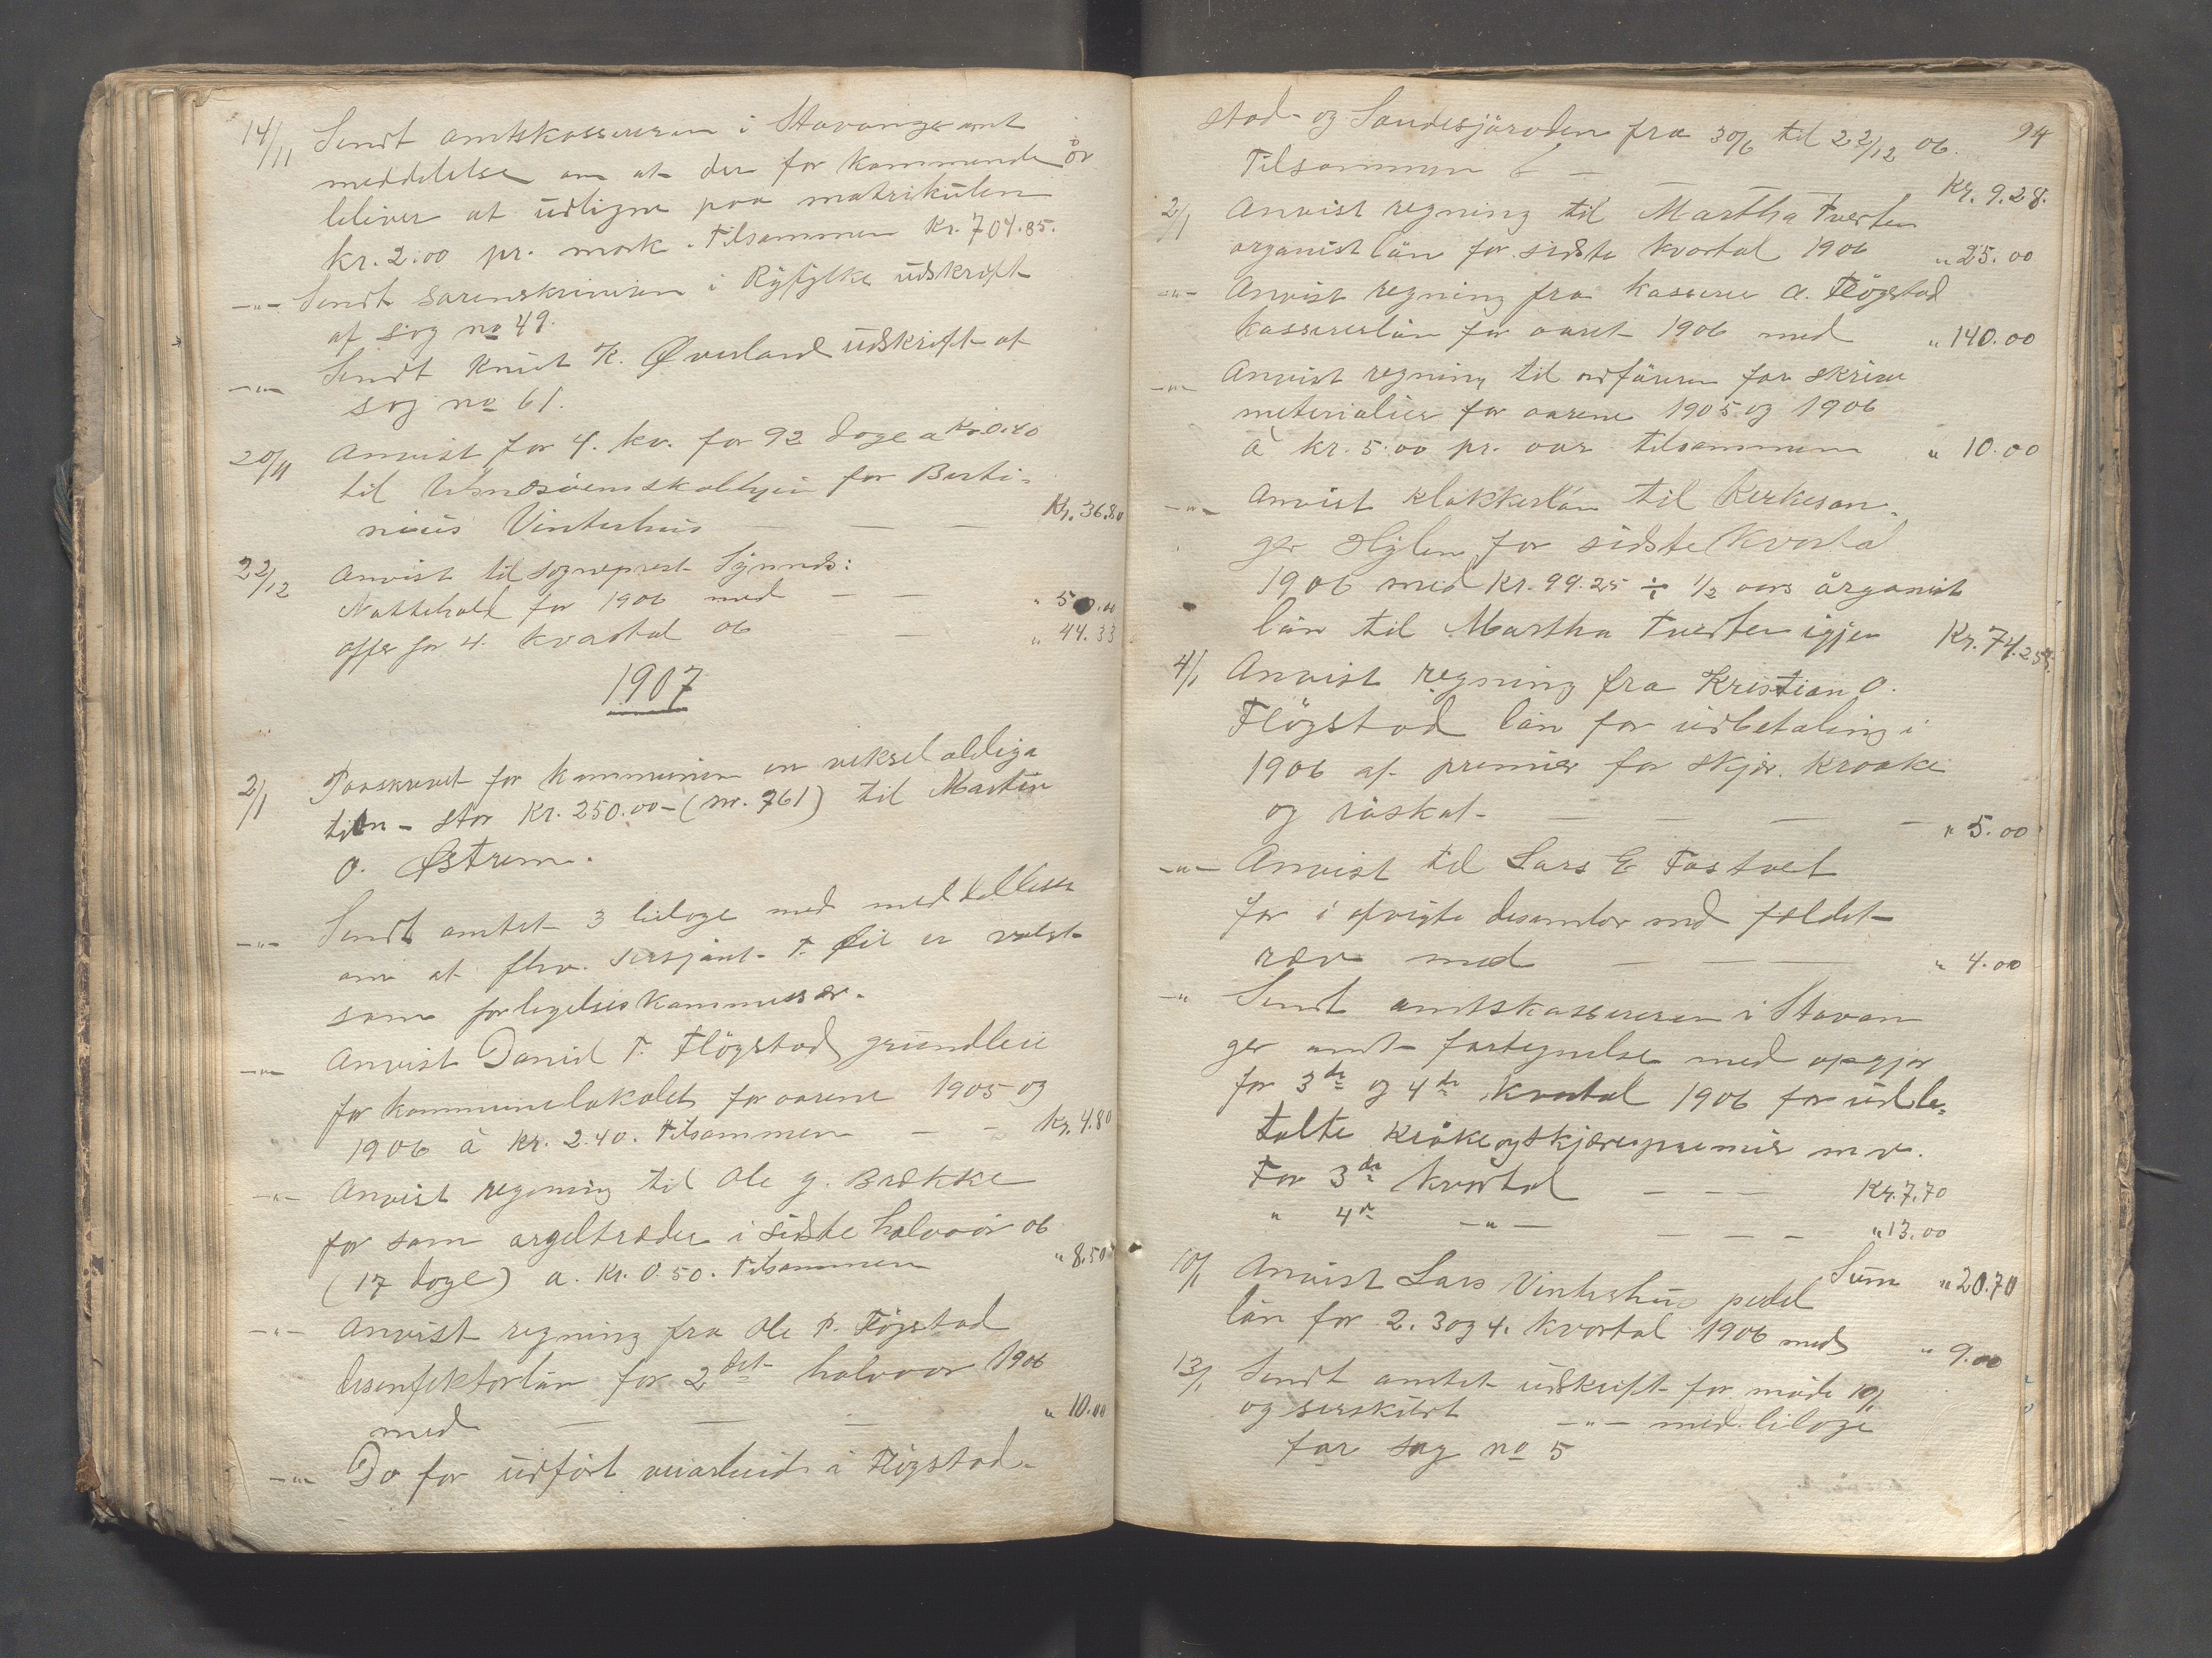 14/11 Sendt amtskassereren i Stavanger amt
meddelelse om at der for kommende år
bliver at udligne paa matrikulen
kr. 2.00 pr. mark. Tilsammen Kr. 704.85.
-„- Sendt Sorenskriveren i Ryfylke udskrift
af sag no 49.
-„- Sendt Knut K. Øverland udskrift af
sag no 61.
20/11 Anvist for 4. kv. for 92 dage a Kr. 0.40
til for Berti-
nius Vinterhus — — — Kr. 36.80
22/12 Anvist til sogneprest Synnds:
Nattehold for 1906 med — — „ 50.00
offer for 4. kvartal 06 — „ 44.33
1907
2/1 Paaskrevet for kommunen en veksel obliga
tion - stor Kr. 250.00 - (nr. 761) til Martin
O. Østrem.
-„- Sendt amtet 3 bilage med meddellelse
om at fhv. sersjant T. Lie er valgt
som forligelseskommissær.
-„- Anvist Daniel T. Fløgstad grundleie
for kommunelokalet for aarene 1905 og
1906 à kr. 2.40. Tilsammen — - Kr. 4.80
-„- Anvist regning til Ole G. Brække
for som orgeltræder i sidste halvaar 06
(17 dage) a. Kr. 0.50. Tilsammen „ 8.50
-„- Anvist regning fra Ole P. Fløgstad
desenfektørlön for 2det halvaar 1906
med — — — „ 10.00
-„- Do for udført veiarbeide i Fløgstad-
94
stad- og Sandesjöroden fra 30/6 til 22/12 06.
Tilsammen — — Kr. 9.28.
2/1 Anvist regning til Martha Tveiten
organistlön for sidste kvartal 1906 „ 25.00
-„- Anvist regning fra kasserer A. Fløgstad
kassererlön for aaret 1906 med „ 140.00
-„- Anvist regning til ordføreren for skrive
materialier for aarene 1905 og 1906
à kr. 5.00 pr. aar tilsammen „ 10.00
-„- Anvist klokkerlön til Kirkesan-
ger Hylen for sidste kvartal
1906 med Kr. 99.25 ÷ 1/2 aars örganist
lön til Martha Tveiten igjen Kr. 74.25
4/1 Anvist regning fra Kristian O.
Fløgstad lön for udbetaling i
1906 af premier for skjær. kraake
og röskat — — — — „ 5.00
-„- Anvist til Lars E Tostvet
for i afvigte desember md fældet
ræv med — — — „ 4.00
-„ Sendt amtskassereren i Stavan
ger amt fortegnelse med opgjør
for 3de og 4de kvartal 1906 for udbe-
talte kråke og skjærepremier m.v.
For 3de kvartal — — — Kr. 7.70
„ 4de -„- — — - „ 13.00
Sum „ 20.70
10/1 Anvist Lars Vinterhus pedel
lön for 2. 3 og 4. kvartal 1906 med „ 9.00
13/1 Sendt amtet udskrift for møde 10/1
og serskilt -„- med bilage
for sag no 5